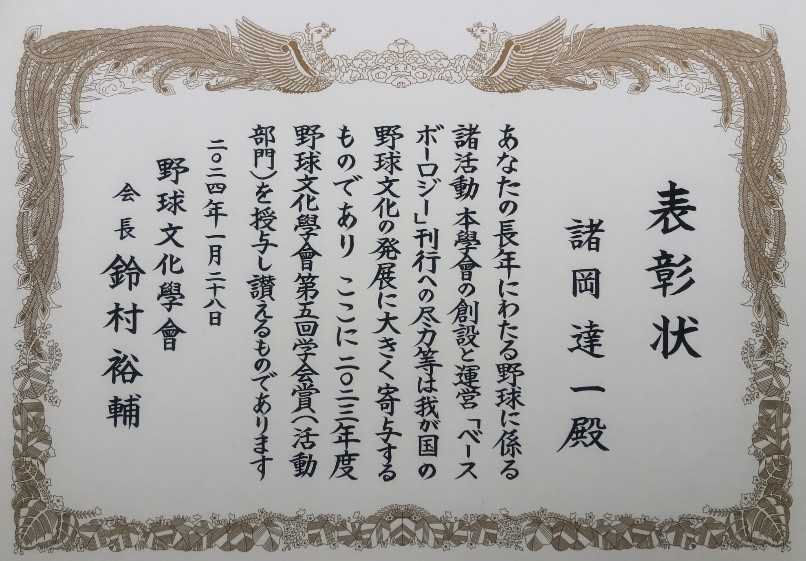 表彰状
諸岡達一殿
あなたの長年にわたる野球に係る
諸活動 本學會の創設と運営 「ベース
ボーロジー」刊行への尽力等は我が国の
野球文化の発展に大きく寄与する
ものであり ここに二〇二三年度
野球文化學會第五回学会賞(活動
部門)を授与し讃えるものであります
二〇二四年一月二十八日
野球文化學會
会長 鈴村裕輔